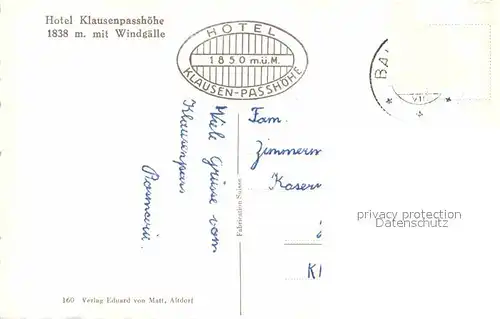 Hotel Klausenpasshöhe
1838 m. mit Windgälle
HOTEL
1850 m.ü.M.
KLAUSEN-PASSHÖHE
BA
VII
Viele Grüsse vom
Klausenpass
Rosmarie.
Fabrication Suisse
Fam.
Zimmerm
Kasern
Kl
privacy protection
Datenschutz
160 Verlag Eduard von Matt, Altdorf